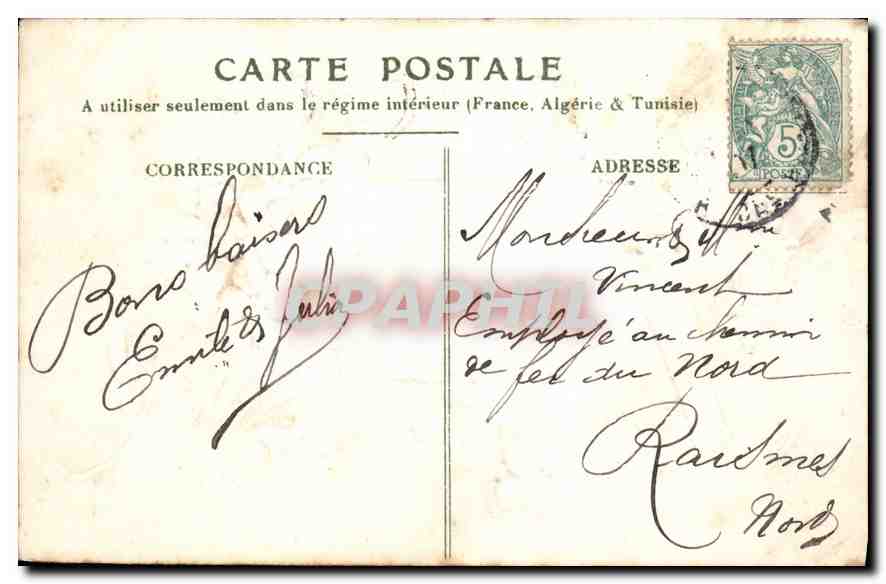 CARTE POSTALE
A utiliser seulement dans le régime intérieur (France, Algérie & Tunisie)
CORRESPONDANCE
Bons baisers
Emile &
ADRESSE
Monsieur & Mme
Vincent
Employé au chemin
de fer du Nord
Raismes
Nord
5
POSTE
CPAPHIL